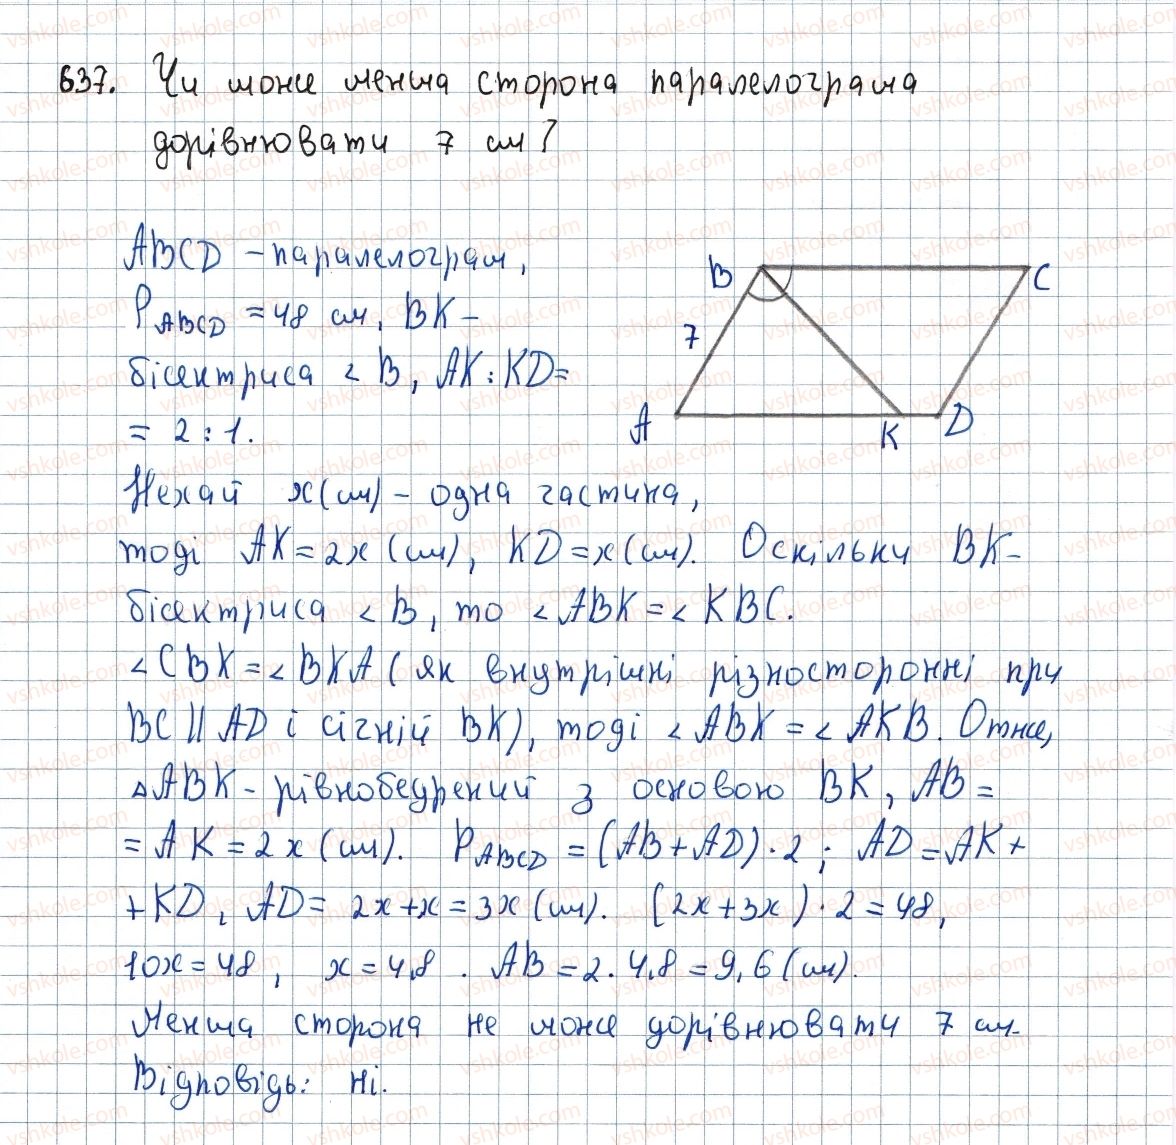 637. Чи може менша сторона паралелограма
дорівнювати 7 см?
ABCD – паралелограм,
P ABCD = 48 см, BK –
бісектриса ∠ B, AK : KD =
= 2 : 1.
B
C
7
A
K
D
Нехай x (см) – одна частина,
тоді AK = 2x (см), KD = x (см). Оскільки BK –
бісектриса ∠ B, то ∠ ABK = ∠ KBC.
∠ CBK = ∠ BKA ( як внутрішні різносторонні при
BC || AD і січній BK), тоді ∠ ABK = ∠ AKB. Отже,
△ ABK – рівнобедрений з основою BK, AB =
= AK = 2x (см). P ABCD = (AB + AD) · 2 ; AD = AK +
+ KD, AD = 2x + x = 3x (см). (2x + 3x) · 2 = 48,
10x = 48, x = 4,8 . AB = 2 · 4,8 = 9,6 (см).
Менша сторона не може дорівнювати 7 см.
Відповідь: ні.
vshkole.com